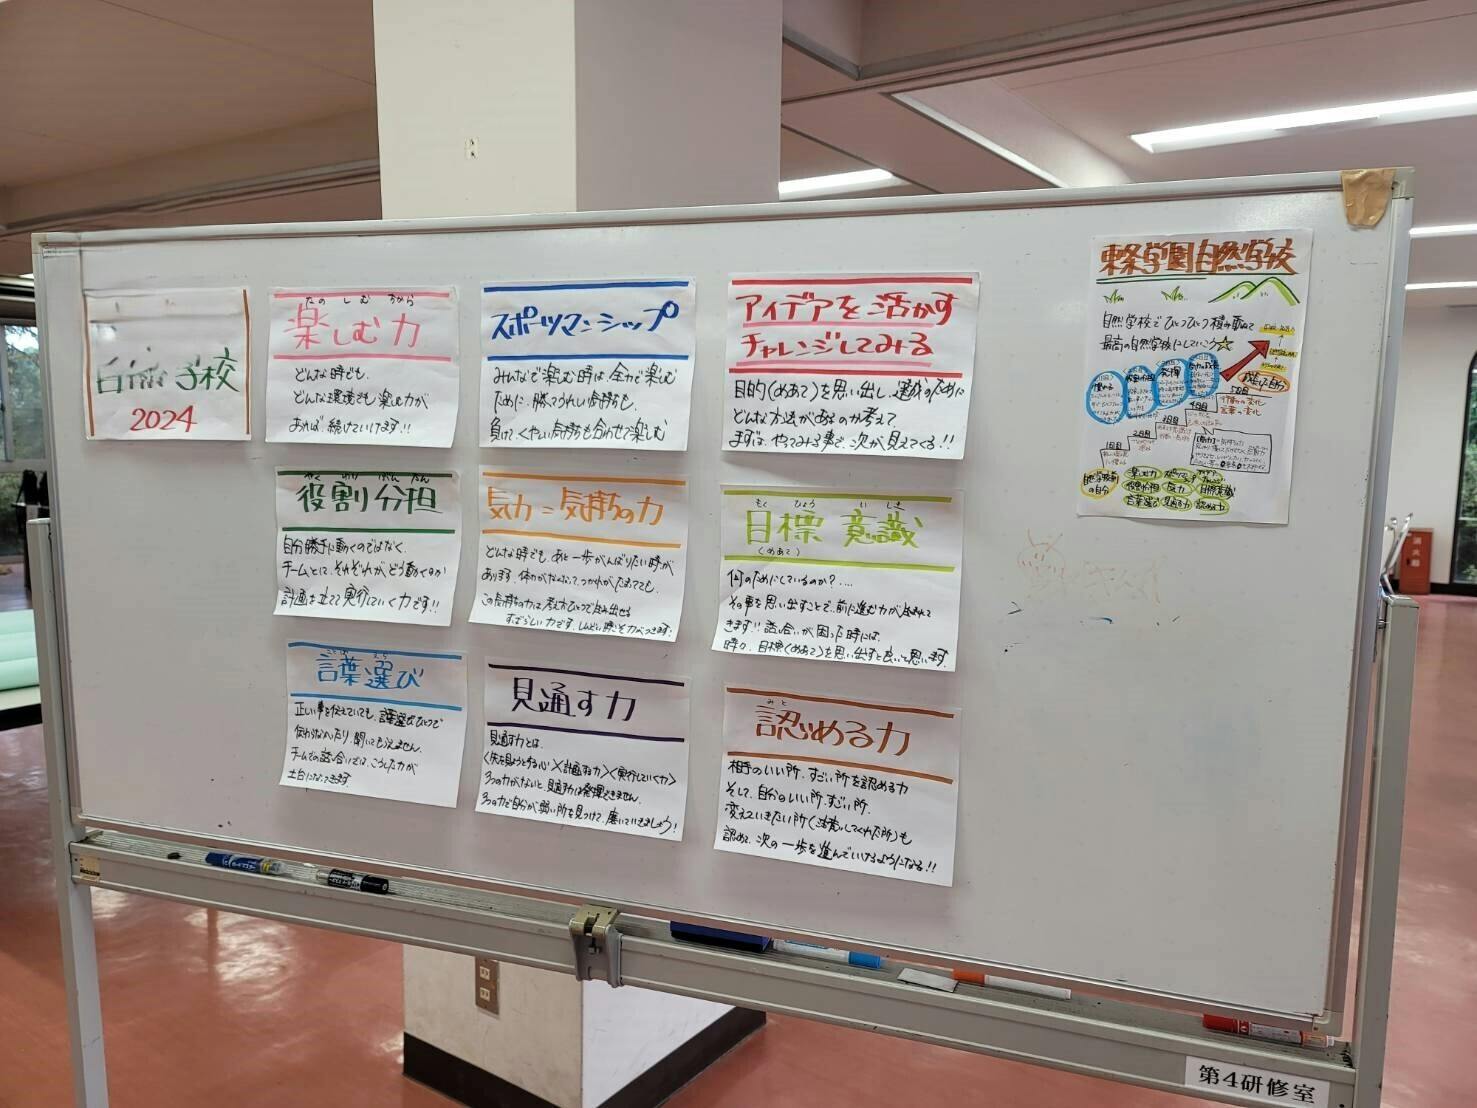 自然学校
2024
たのしむ ちから
楽しむ力
どんな時でも、
どんな環境でも楽しむ力が
あれば続けていけます!!
スポーツマンシップ
みんなで楽しむ時は、全力で楽しむ
ために、勝てうれしい気持ちも、
負けてくやしい気持ちも合わせて楽しむ
アイデアを活かす
チャレンジしてみる
目的(めあて)を思い出し、達成のために
どんな方法があるのか考えて
まずは、やってみる事で、次が見えてくる!!
やく わり ぶん たん
役割分担
自分勝手に動くのではなく、
チームごとに、それぞれが、どう動くのか
計画を立てて実行していく力です!!
気力=気持ちの力
どんな時でも、あと一歩がんばりたい時が
あります。体力がなくなって、つかれがたまてても、
この気持ちの力は考え方ひとつで生み出せる
すばらしい力です。しんどい時こそ力がつきます!
もく ひょう い しき
目標意識
(めあて)
何のためにしているのか?....
その事を思い出すことで、前に進む力が生まれて
きます!!話し合いが困った時には、
時々、目標(めあて)を思い出すと良いと思います。
ことば えら
言葉選び
正しい事を伝えていても、言葉選びひとつで
伝わらなかったり、聞いてもらえません。
チームでの話し合いでは、こうした力が
土台になってきます。
見通す力
見通す力とは、
<先を見ようとする心>×<計画する力>×<実行していく力>
3つの力がないと、見通す力は発揮できません。
3つの力で自分が弱い所を見つけて、磨いていきましょう!
みと
認める力
相手のいい所、すごい所を認める力
そして、自分のいい所、すごい所、
変えていきたい所
認めて、次の一歩を進んでいけるようになる!!
東条学園自然学校
自然学校でひとつひとつ積み重ねて
最高の自然学校にしていこう☆
成長した自分
5日目
行動の変化
言葉の変化
4日目
3日目
2日目
1日目
自然学校前
の自分
楽しむ力
役割分担
気力
目標意識
言葉選び
見通す力
認める力
消火器
第4研修室